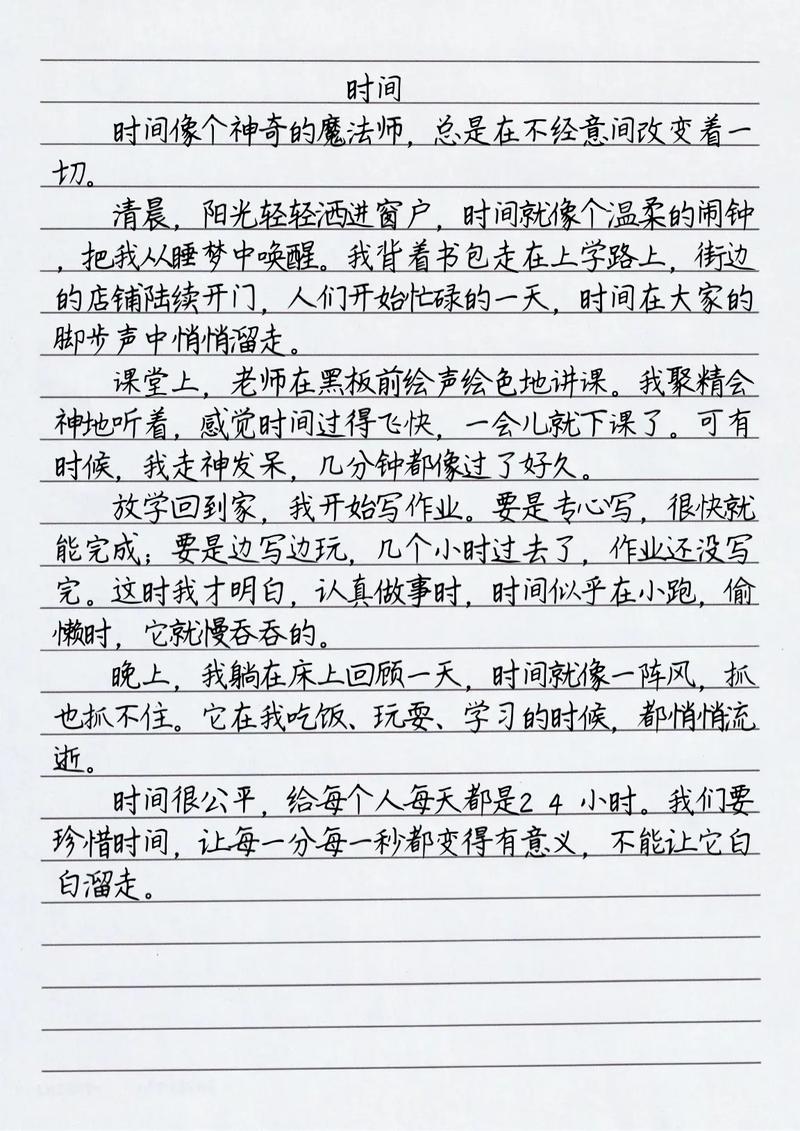 时间
时间像个神奇的魔法师，总是在不经意间改变着一
切。
清晨，阳光轻轻洒进窗户，时间就像个温柔的闹钟
，把我从睡梦中唤醒。我背着书包走在上学路上，街边
的店铺陆续开门，人们开始忙碌的一天，时间在大家的
脚步声中悄悄溜走。
课堂上，老师在黑板前绘声绘色地讲课。我聚精会
神地听着，感觉时间过得飞快，一会儿就下课了。可有
时候，我走神发呆，几分钟都像过了好久。
放学回到家，我开始写作业。要是专心写，很快就
能完成；要是边写边玩，几个小时过去了，作业还没写
完。这时我才明白，认真做事时，时间似乎在小跑，偷
懒时，它就慢吞吞的。
晚上，我躺在床上回顾一天，时间就像一阵风，抓
也抓不住。它在我吃饭、玩耍、学习的时候，都悄悄流
逝。
时间很公平，给每个人每天都是24小时。我们要
珍惜时间，让每一分每一秒都变得有意义，不能让它白
白溜走。